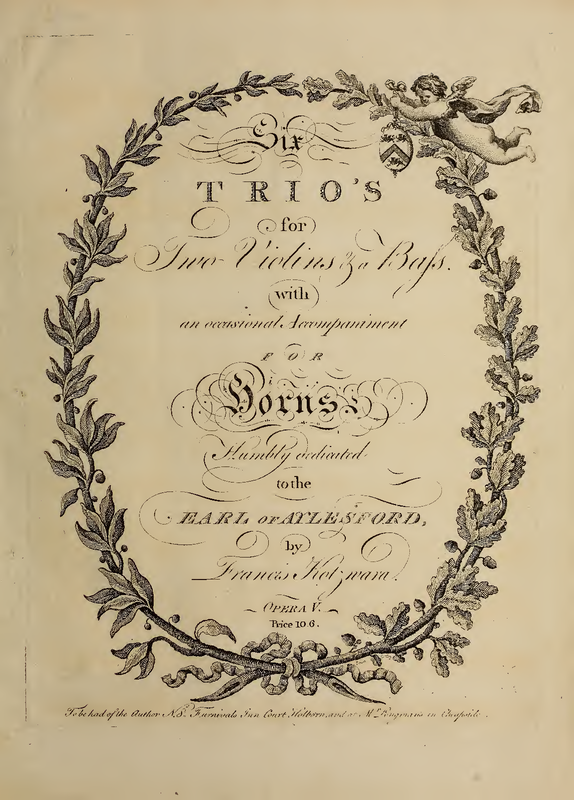 Six
TRIO'S
for
Two Violins & a Baſs.
with
an occasional Accompaniment
FOR
Horns
Humbly dedicated
to the
EARL OF AYLESFORD,
by
Francis Kotzwara.
OPERA V.
Price 10.6.
To be had of the Author Furnivals Inn Court Holborn, and at in Cheapside.